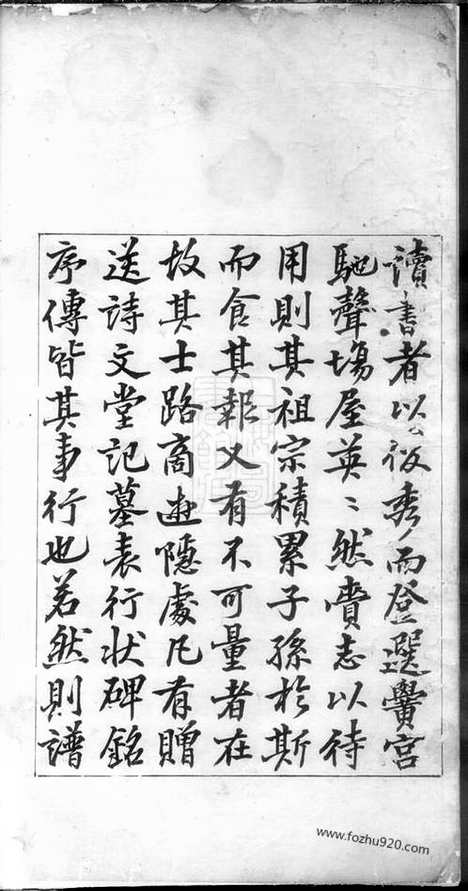 讀書者以俊秀而登選黌宮
馳聲塲屋英〻然賷志以待
用則其祖宗積累子孫於斯
而食其報又有不可量者在
故其士路商遊隱處凡有贈
送詩文堂記墓表行状碑銘
序傳皆其事行也若然則譜
www.fozhu920.com